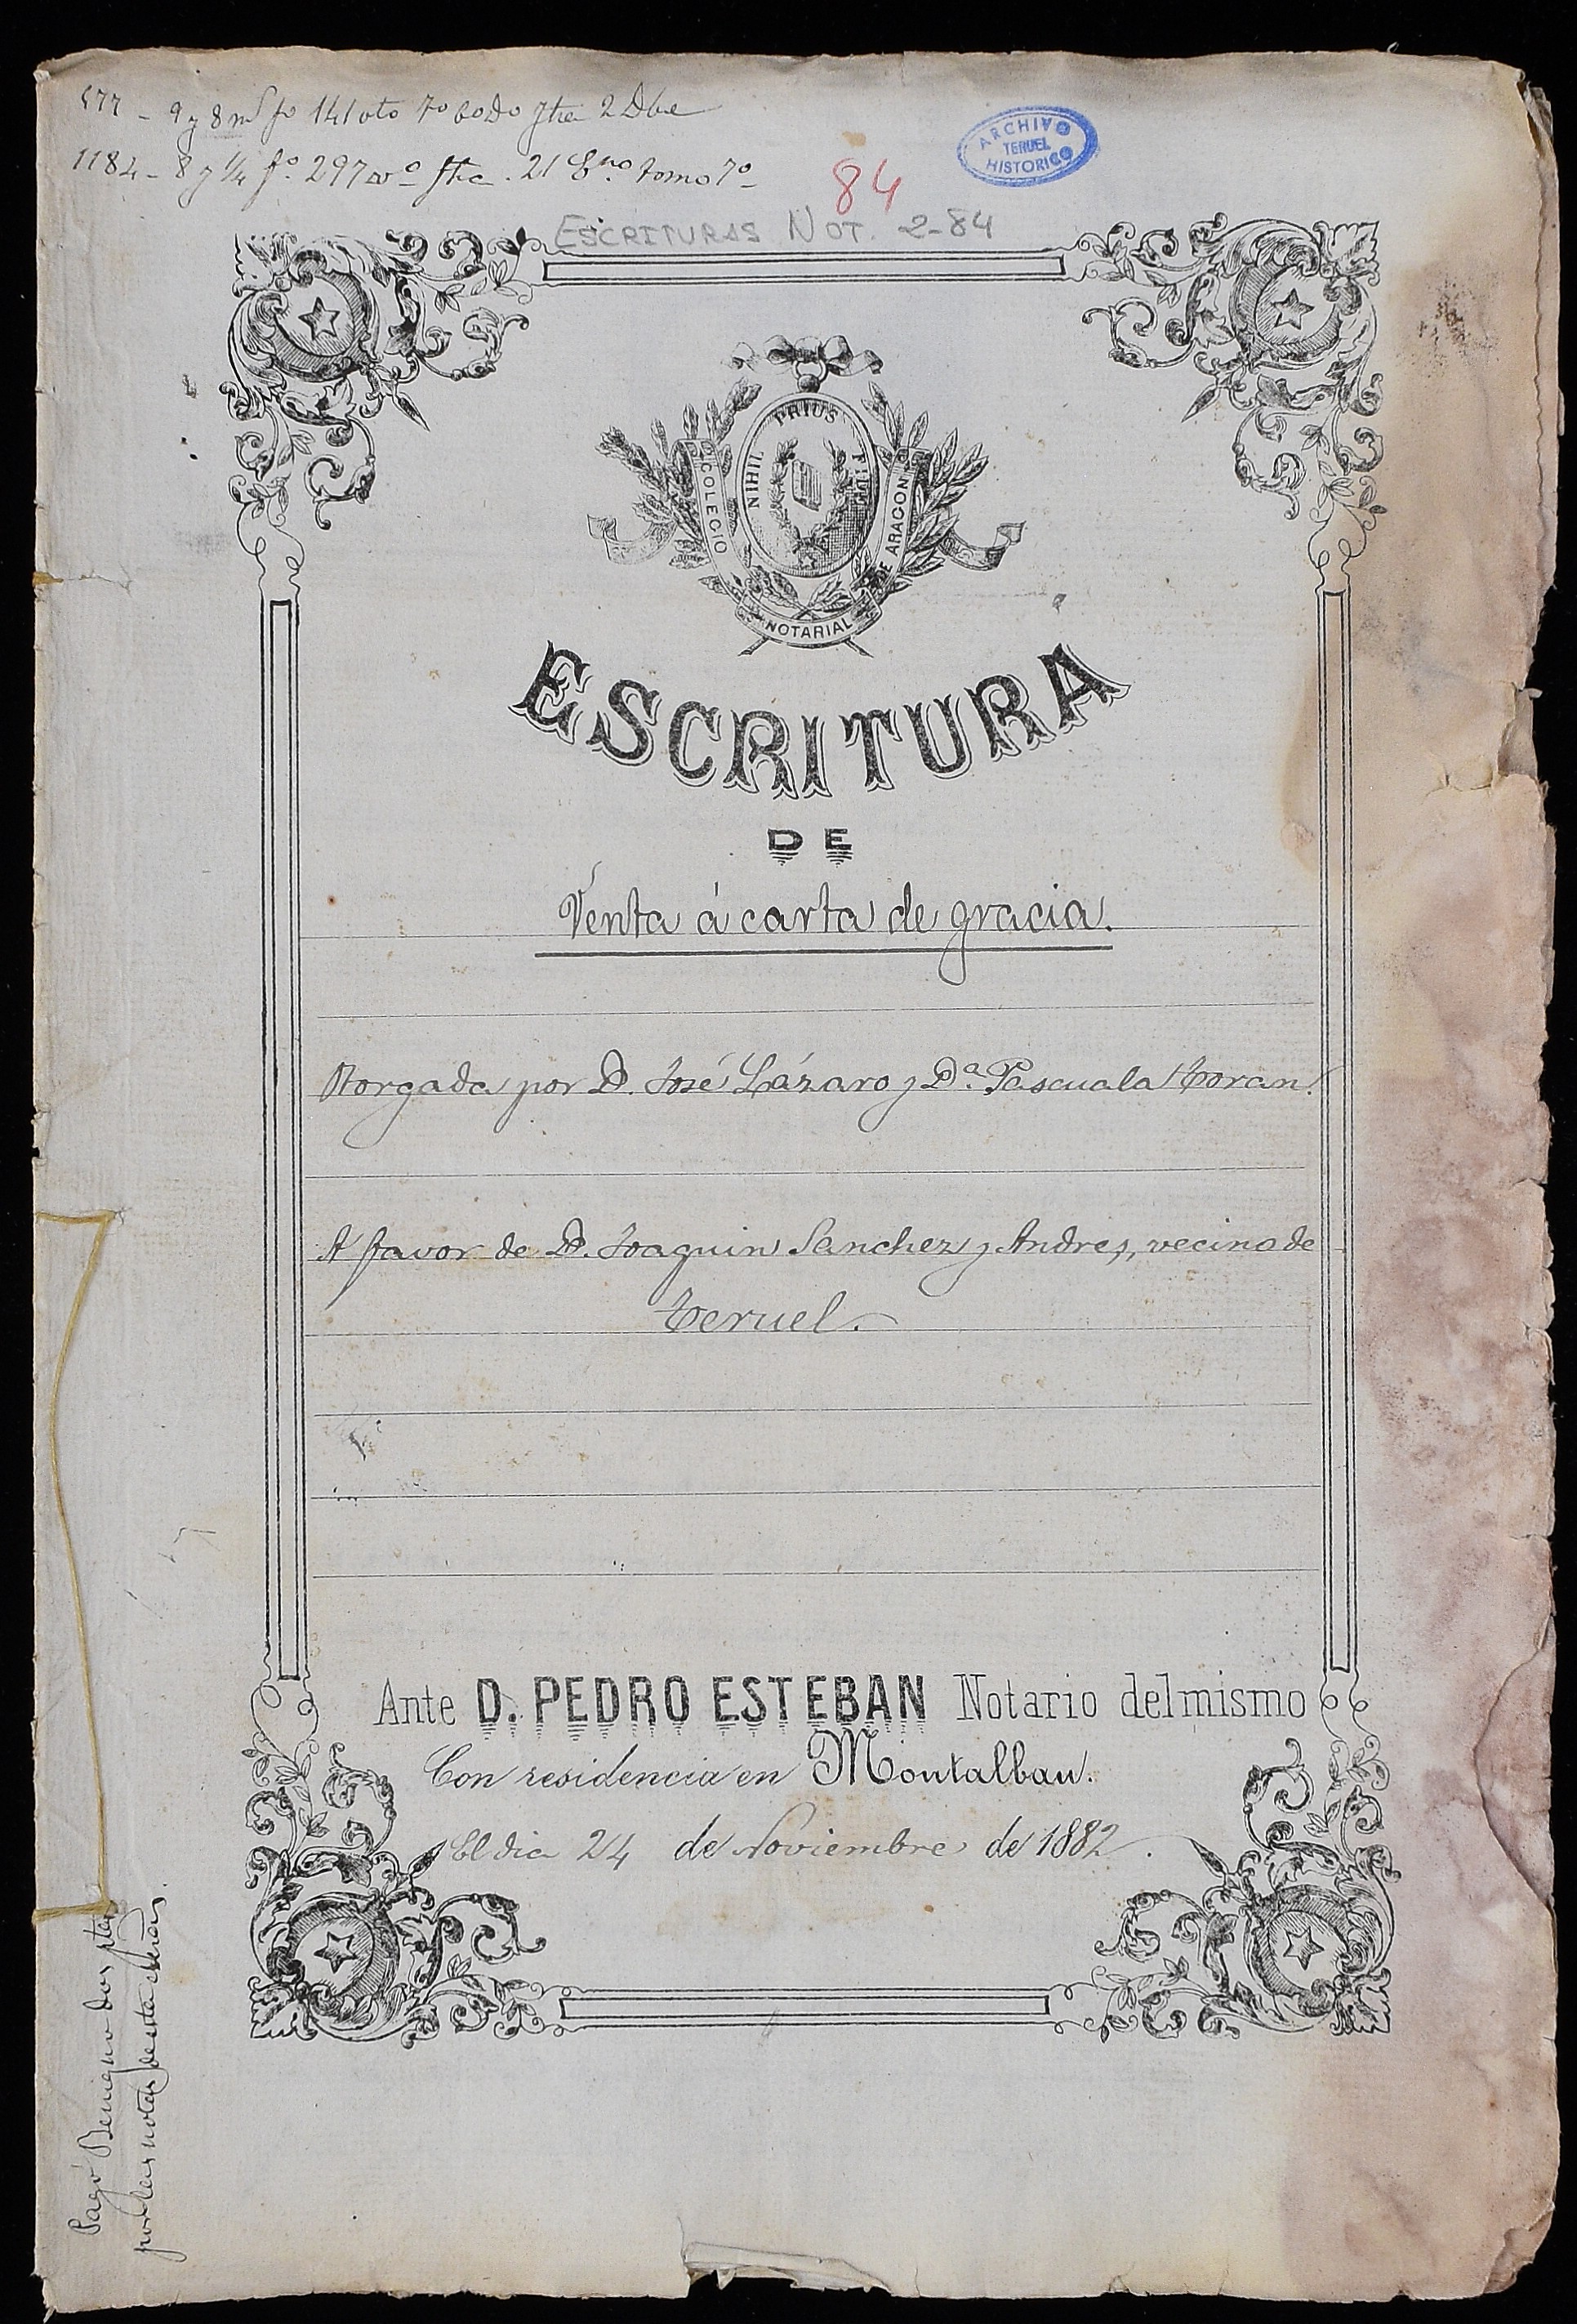 477 - 9 y 8 mS fo 141 vto 7o
1184 - 8 y 1/4 fº 297 tomo 7º
84
ARCHIVO
TERUEL
HISTORICO
ESCRITURAS NOT. 2-84
NIHIL PRIUS FIDE
COLEGIO NOTARIAL DE ARAGON
ESCRITURA
DE
Venta á carta de gracia.
Otorgada por D. José Lázaro y Dª. Pascuala Toran.
A favor de D. Joaquin Sanchez y Andres, vecino de
Teruel.
Ante D. PEDRO ESTEBAN Notario del mismo
Con residencia en Montalban.
El dia 24 de Noviembre de 1882.
Pagó Benigno dos ptas
por las notas de esta